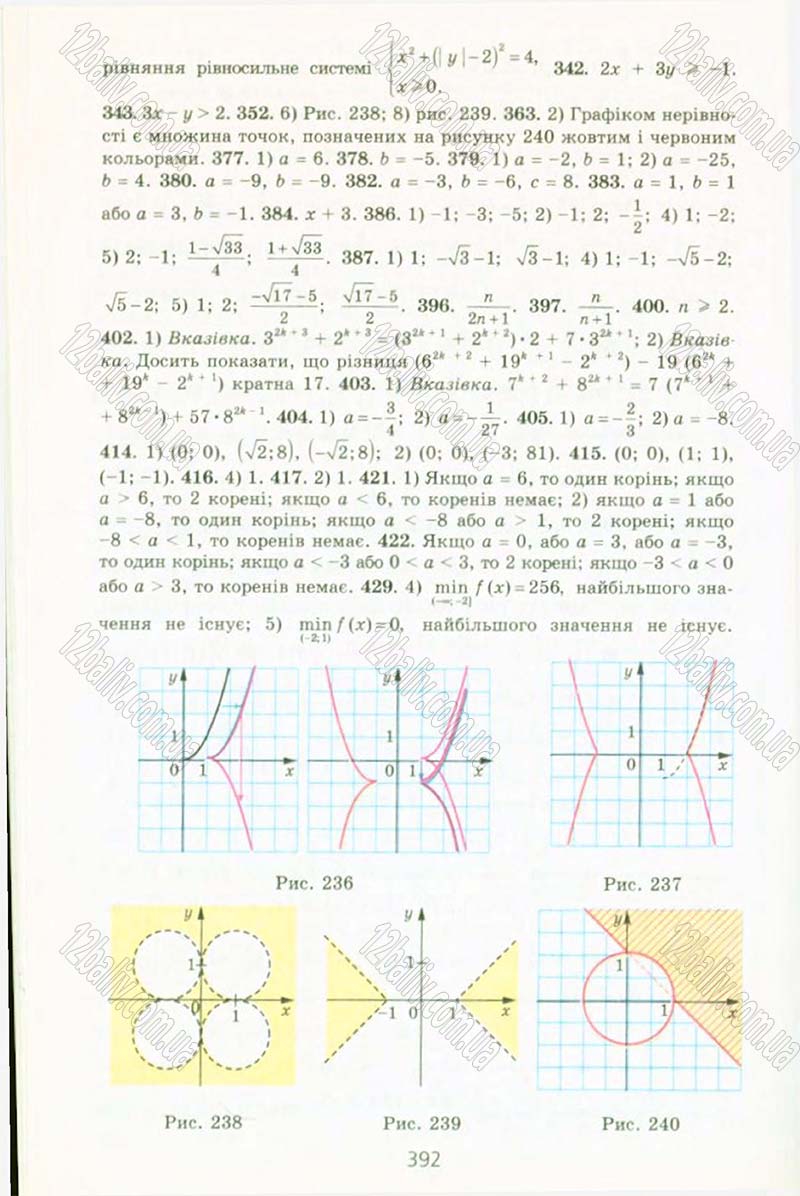 рівняння рівносильне системі { x² + (| y | – 2)² = 4, x ⩾ 0. 342. 2x + 3y ⩾ –1.
343. 3x – y > 2. 352. 6) Рис. 238; 8) рис. 239. 363. 2) Графіком нерівно-
сті є множина точок, позначених на рисунку 240 жовтим і червоним
кольорами. 377. 1) a = 6. 378. b = –5. 379. 1) a = –2, b = 1; 2) a = –25,
b = 4. 380. a = –9, b = –9. 382. a = –3, b = –6, c = 8. 383. a = 1, b = 1
або a = 3, b = –1. 384. x + 3. 386. 1) –1; –3; –5; 2) –1; 2; –1/2; 4) 1; –2;
5) 2; –1; (1–√33)/4; (1+√33)/4. 387. 1) 1; –√3–1; √3–1; 4) 1; –1; –√5–2;
√5–2; 5) 1; 2; (–√17–5)/2; (√17–5)/2. 396. n/(2n+1). 397. n/(n+1). 400. n ⩾ 2.
402. 1) Вказівка. 3^(2k + 3) + 2^(k + 3) = (3^(2k + 1) + 2^(k + 2)) · 2 + 7 · 3^(2k + 1); 2) Вказів-
ка. Досить показати, що різниця (6^(2k + 2) + 19^(k + 1) – 2^(k + 2)) – 19 (6^(2k) +
+ 19^k – 2^(k + 1)) кратна 17. 403. 1) Вказівка. 7^(k + 2) + 8^(2k + 1) = 7 (7^(k + 1) +
+ 8^(2k – 1)) + 57 · 8^(2k – 1). 404. 1) a = –3/4; 2) a = –1/27. 405. 1) a = –2/3; 2) a = –8.
414. 1) (0; 0), (√2; 8), (–√2; 8); 2) (0; 0), (–3; 81). 415. (0; 0), (1; 1),
(–1; –1). 416. 4) 1. 417. 2) 1. 421. 1) Якщо a = 6, то один корінь; якщо
a > 6, то 2 корені; якщо a < 6, то коренів немає; 2) якщо a = 1 або
a = –8, то один корінь; якщо a < –8 або a > 1, то 2 корені; якщо
–8 < a < 1, то коренів немає. 422. Якщо a = 0, або a = 3, або a = –3,
то один корінь; якщо a < –3 або 0 < a < 3, то 2 корені; якщо –3 < a < 0
або a > 3, то коренів немає. 429. 4) min f (x) = 256, найбільшого зна-
(–∞; –2]
чення не існує; 5) min f (x) = 0, найбільшого значення не існує.
(–2; 1)
y 1 0 1 x
y 1 0 1 x
y 1 0 1 x
Рис. 236 Рис. 237
y 1 0 1 x
y 1 –1 0 1 x
y 1 0 1 x
Рис. 238 Рис. 239 Рис. 240
392
12baliv.com.ua